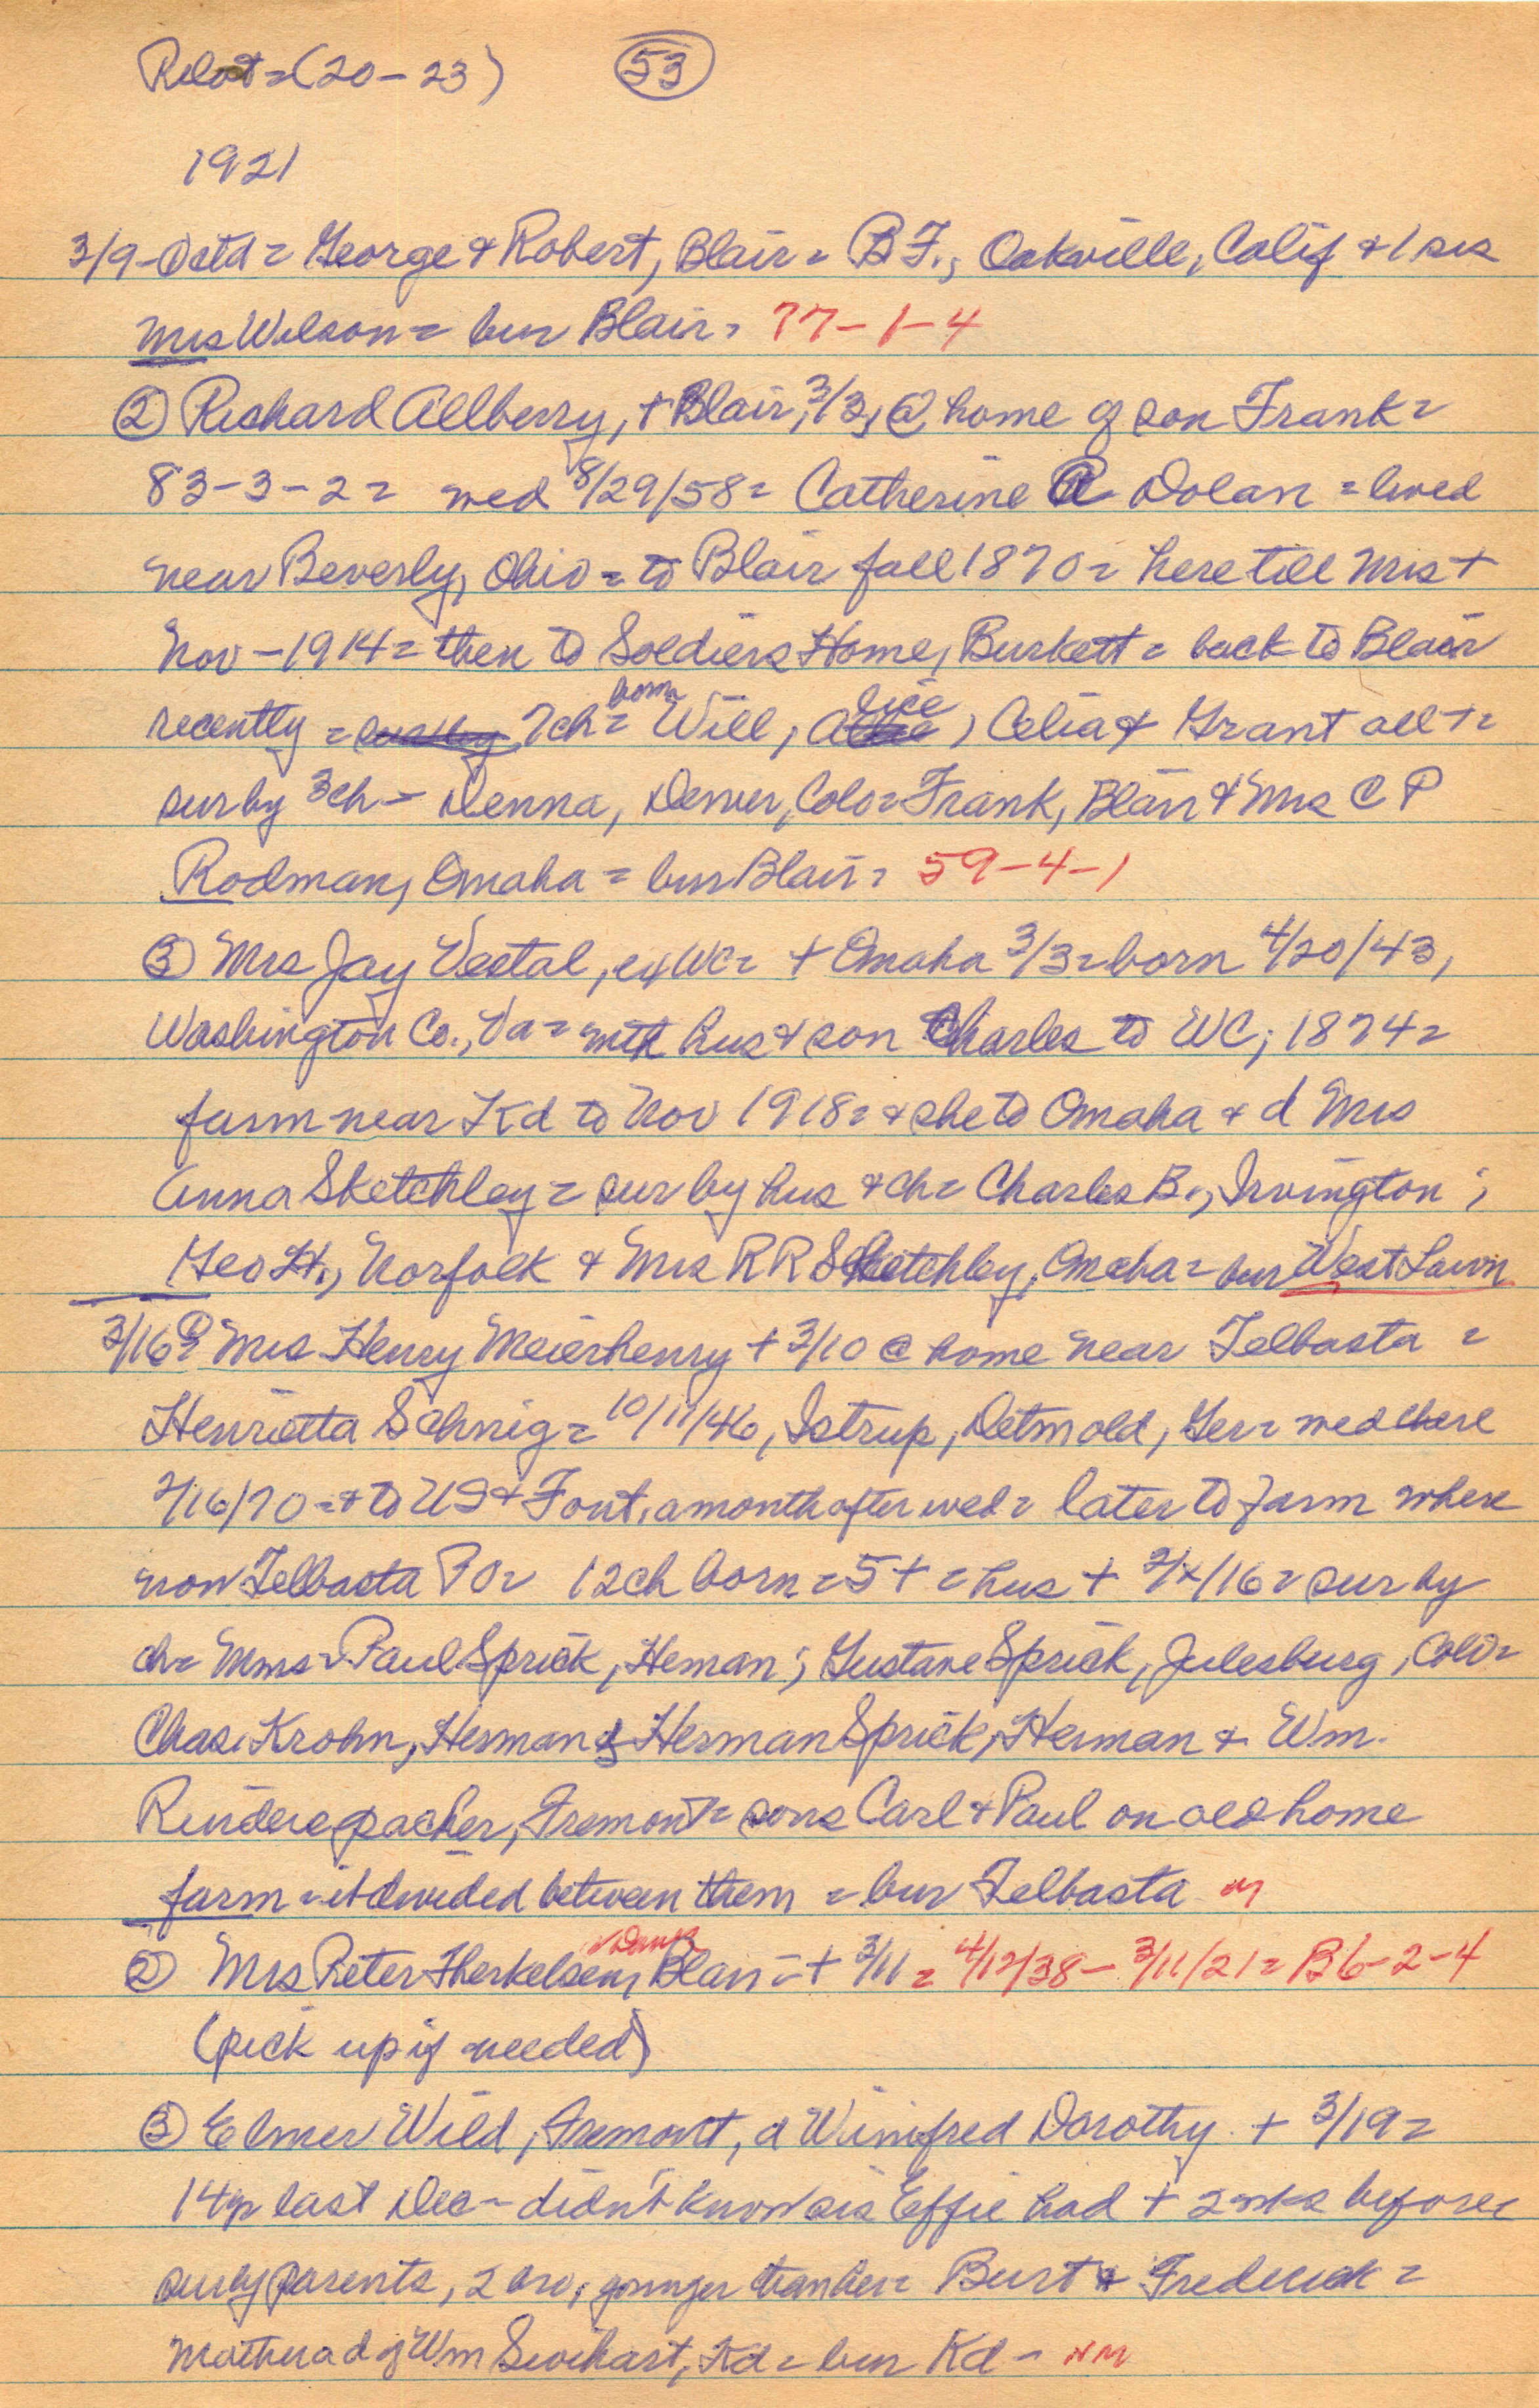 Pilot = (20-23) 53
1921
3/9 - Ostd = George & Robert, Blair = B F., Oakville, Calif & 1 sis
Mrs Wilson = bur Blair = 77-1-4
② Richard Allberry, + Blair, 3/3, @ home of son Frank =
83-3-2 = wed 8/29/58 = Catherine A Dolan = lived
near Beverly, Ohio = to Blair fall 1870 = here till Mrs +
Nov - 1914 = then to Soldiers Home, Burkett = back to Blair
recently = 7ch born = Will, Alice, Celia & Grant all + =
sur by 3ch - Denna, Denver, Colo = Frank, Blair & Mrs C P
Rodman, Omaha = bur Blair = 59-4-1
③ Mrs Jay Vestal, ex WC = + Omaha 3/3 = born 4/20/43,
Washington Co., Va = with hus & son Charles to WC, 1874 =
farm near Kd to Nov 1918 = & she to Omaha & d Mrs
Anna Sketchley = sur by hus & ch = Charles B., Irvington;
Geo H., Norfolk & Mrs R R Sketchley, Omaha = bur West Lawn
3/16 ① = Mrs Henry Meierhenry + 3/10 @ home near Telbasta =
Henrietta Schnig = 10/11/46, Istrup, Detmold, Ger = wed there
2/16/70 = & to US & Font. a month after wed = later to farm where
now Telbasta PO = 12ch born = 5 + = hus + 2/x/16 = sur by
ch = Mmes = Paul Sprick, Herman; Gustave Sprick, Julesburg, Colo =
Chas. Krohn, Herman & Herman Sprick, Herman & Wm.
Rinderspacher, Fremont = sons Carl & Paul on old home
farm = it divided between them = bur Telbasta
② Mrs Peter Therkelsen, Blair = + 3/11 = 4/12/38 - 3/11/21 = B6-2-4
(pick up if needed)
③ Elmer Wild, Fremont, d Winifred Dorothy + 3/19 =
14 yr last Dec - didn't know sis Effie had + 2 wks before
sur by parents, 2 bro, younger than her = Burt & Frederick =
Mother a d of Wm Swihart, Kd = bur Kd - NM